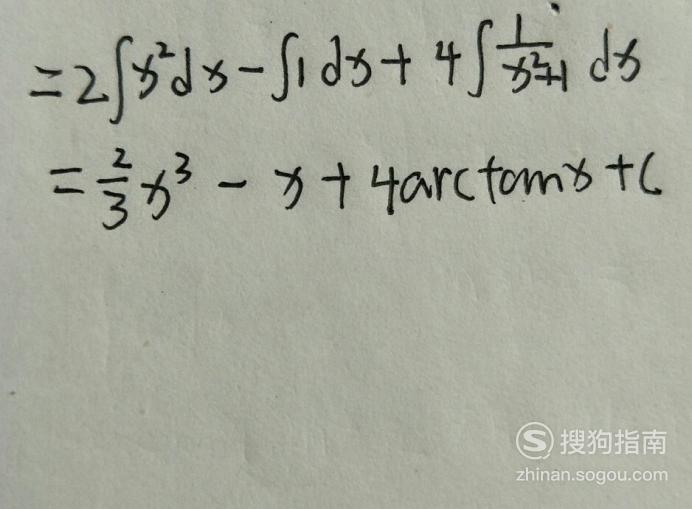 =2∫x²dx-∫1dx+4∫1/(x²+1) dx
=2/3x³-x+4arctanx+C
搜狗指南
zhinan.sogou.com